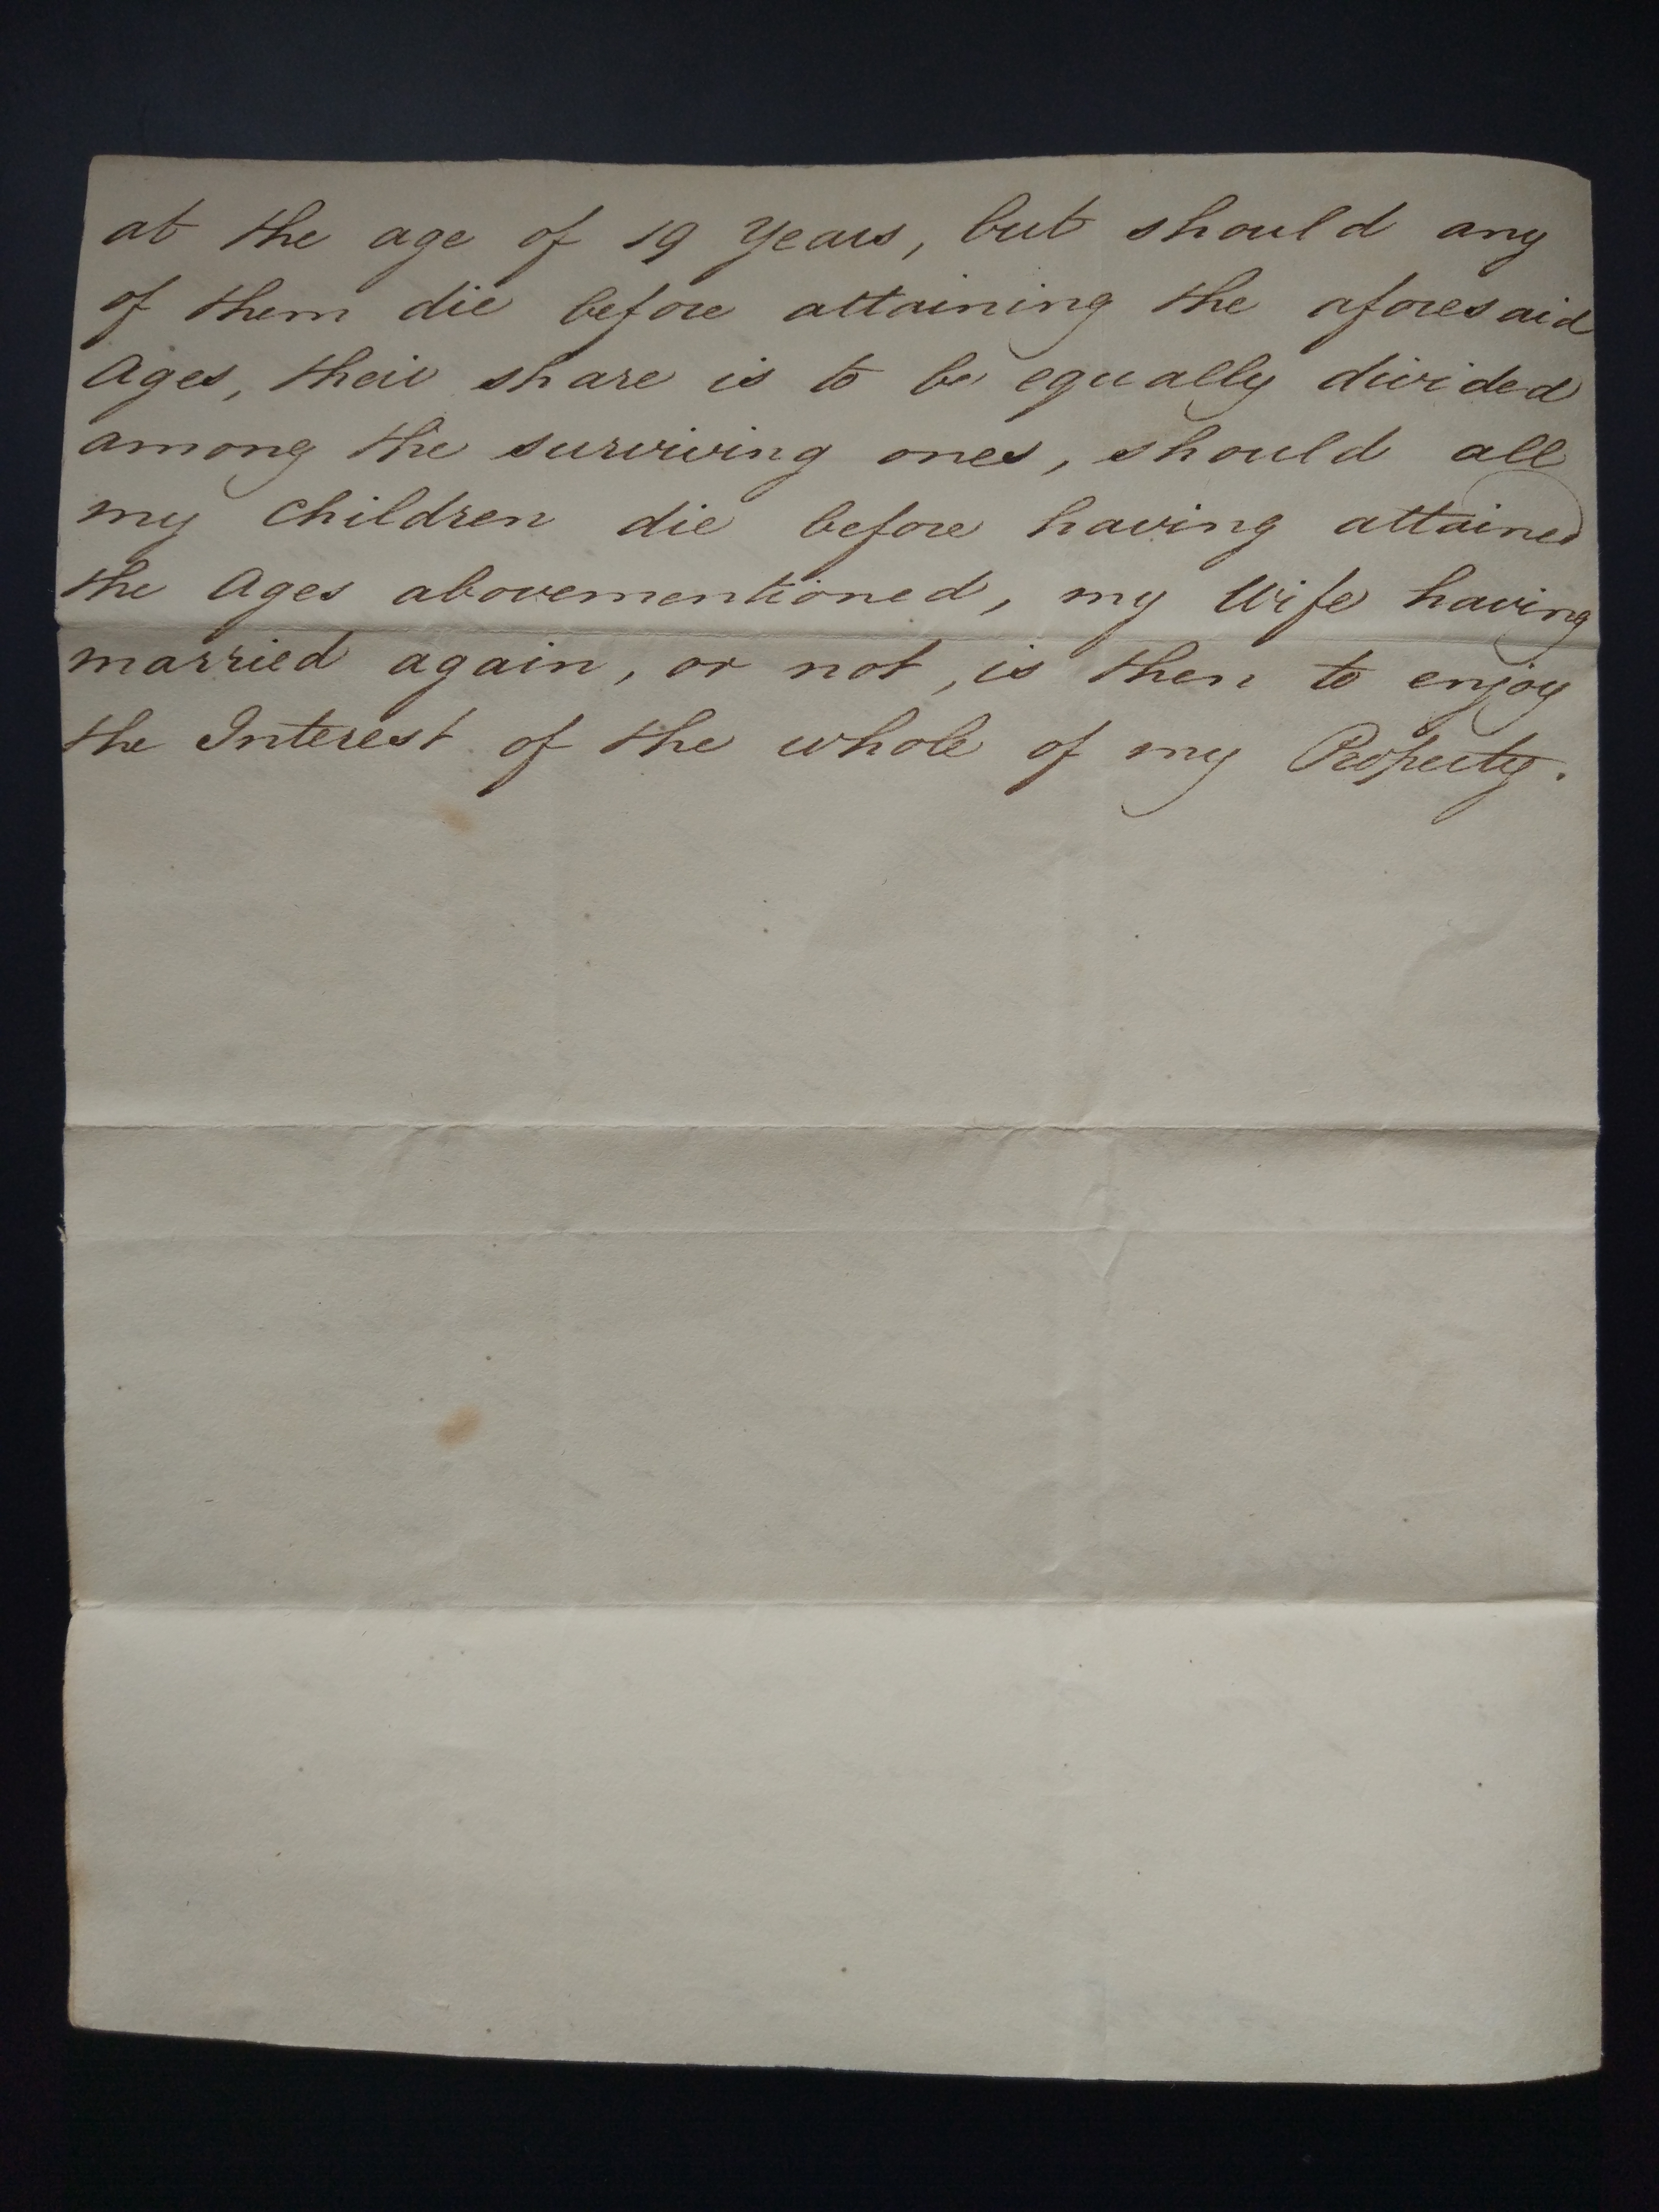 at the age of 19 Years, but should any
of them die before attaining the aforesaid
Ages, their share is to be equally divided
among the surviving ones, should all
my Children die before having attained
the Ages abovementioned, my Wife having
married again, or not, is then to enjoy
the Interest of the whole of my Property.